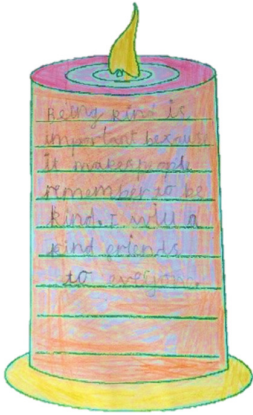 Being kind is
important because
it makes people
remember to be
kind. I will a
kind friends
to everyone.